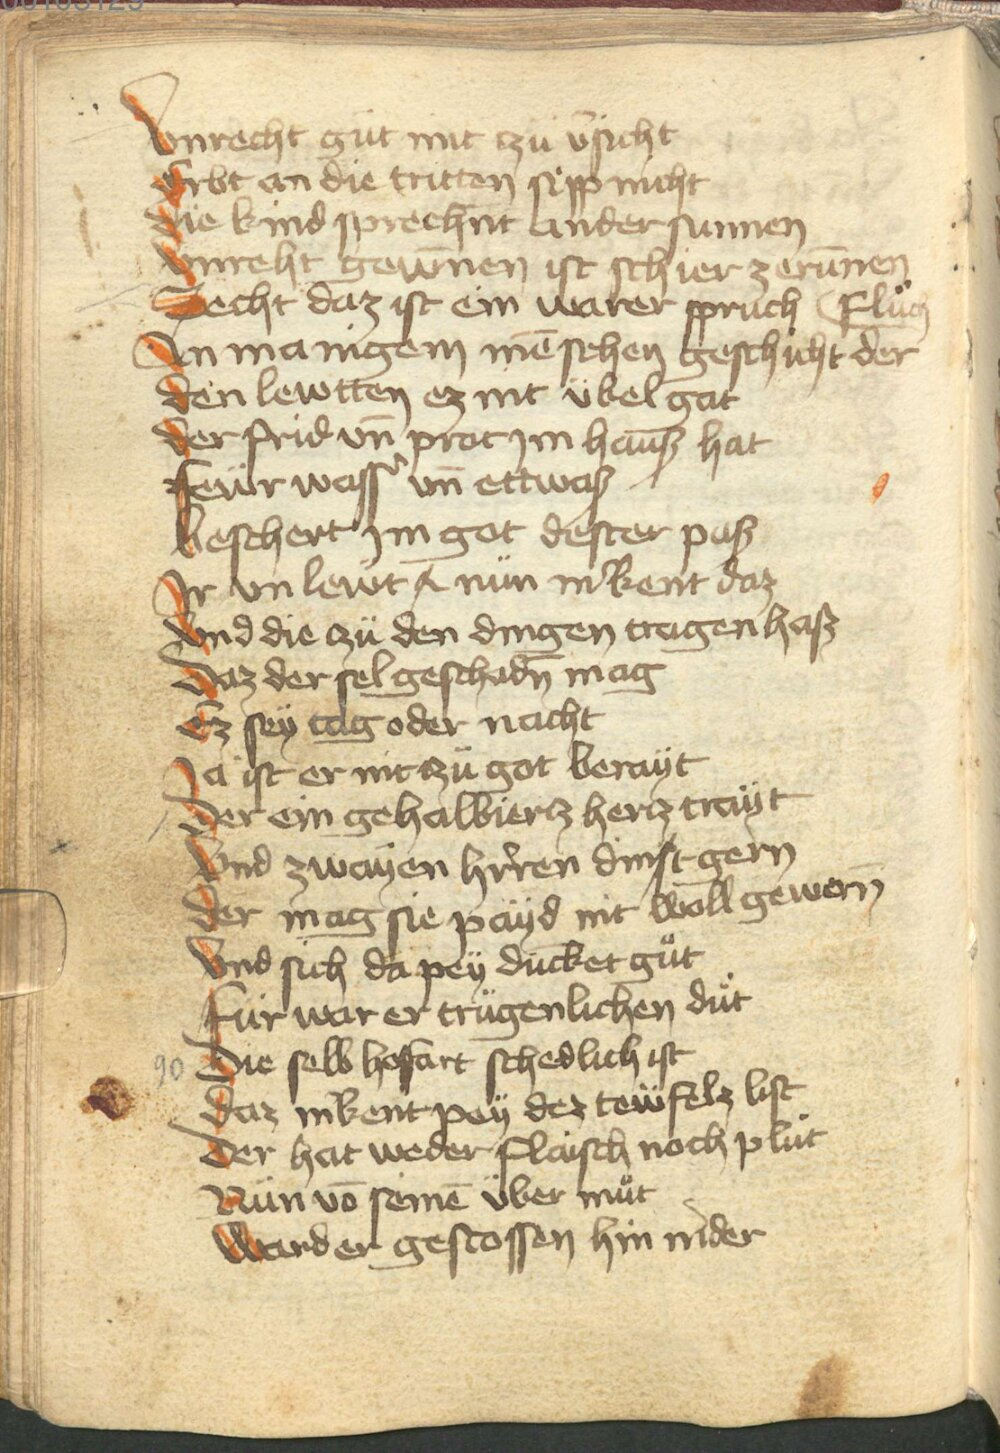 Vnrecht güt mit zü v̈sicht
Erbt an die tritten sipp nicht
Die kind sprechn̄t ander sunnen
Vnreht gewūnen ist schier zerūnen
Secht daz ist ein warer spruch
Flůch
An manigem mēschen geschicht der
Den lewtten ez nit übel gat
Der frid vn̄ prot jm hauß hat
Fewr wass vn̄ ettwaß
Beschert jm got dester paß
Ir vn lewt nün mkent daz
Vnd die zü den dingen tragen haß
Daz der sel geschadn̄ mag
Ez sey tag oder nacht
Ja ist er nit zü got berayt
Der ein gehalbiertz hertz trayt
Vnd zwayen hr̄ren dinst gern
Der mag sie payd nit woll gewern̄
Vnd sich da pey ducket gůt
Für war er trügenlichen důt
90
Die selb hofart schedlich ist
Daz mkent pey dez tewfelz list
Der hat weder flaisch noch plůt
Nün vō seinē über můt
Ward er gestossen hin nider